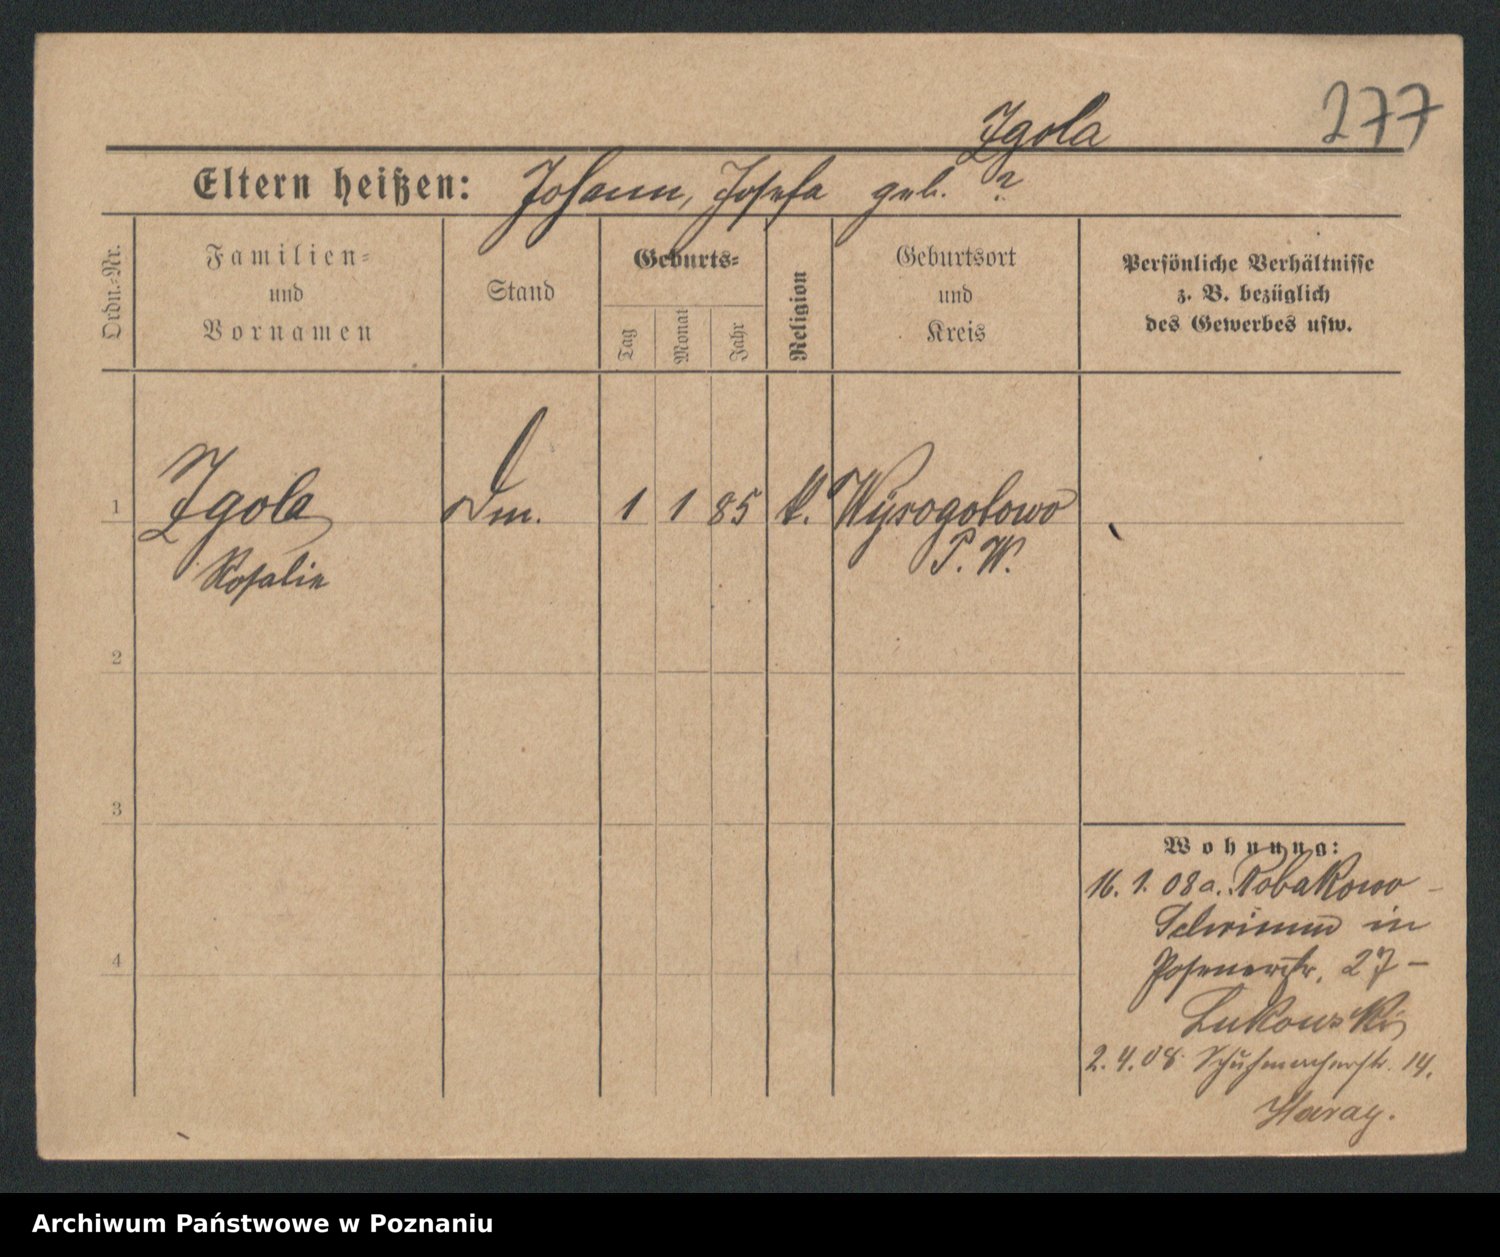 277
Igola
Eltern heißen: Johann, Josefa geb. ?
Ordn.-Nr.
Familien-
und
Vornamen
Stand
Geburts-
Tag
Monat
Jahr
Religion
Geburtsort
und
Kreis
Persönliche Verhältnisse
z. B. bezüglich
des Gewerbes usw.
1 Igola Dm. 1 1 85 k. Wysogotowo
Rosalie P. W.
2
3
4
Wohnung:
16. 1. 08 a. Robakowo -
Schrimm in
Posenerstr. 27 -
Lukowski
2. 4. 08 Schuhmacherstr. 14.
Archiwum Państwowe w Poznaniu